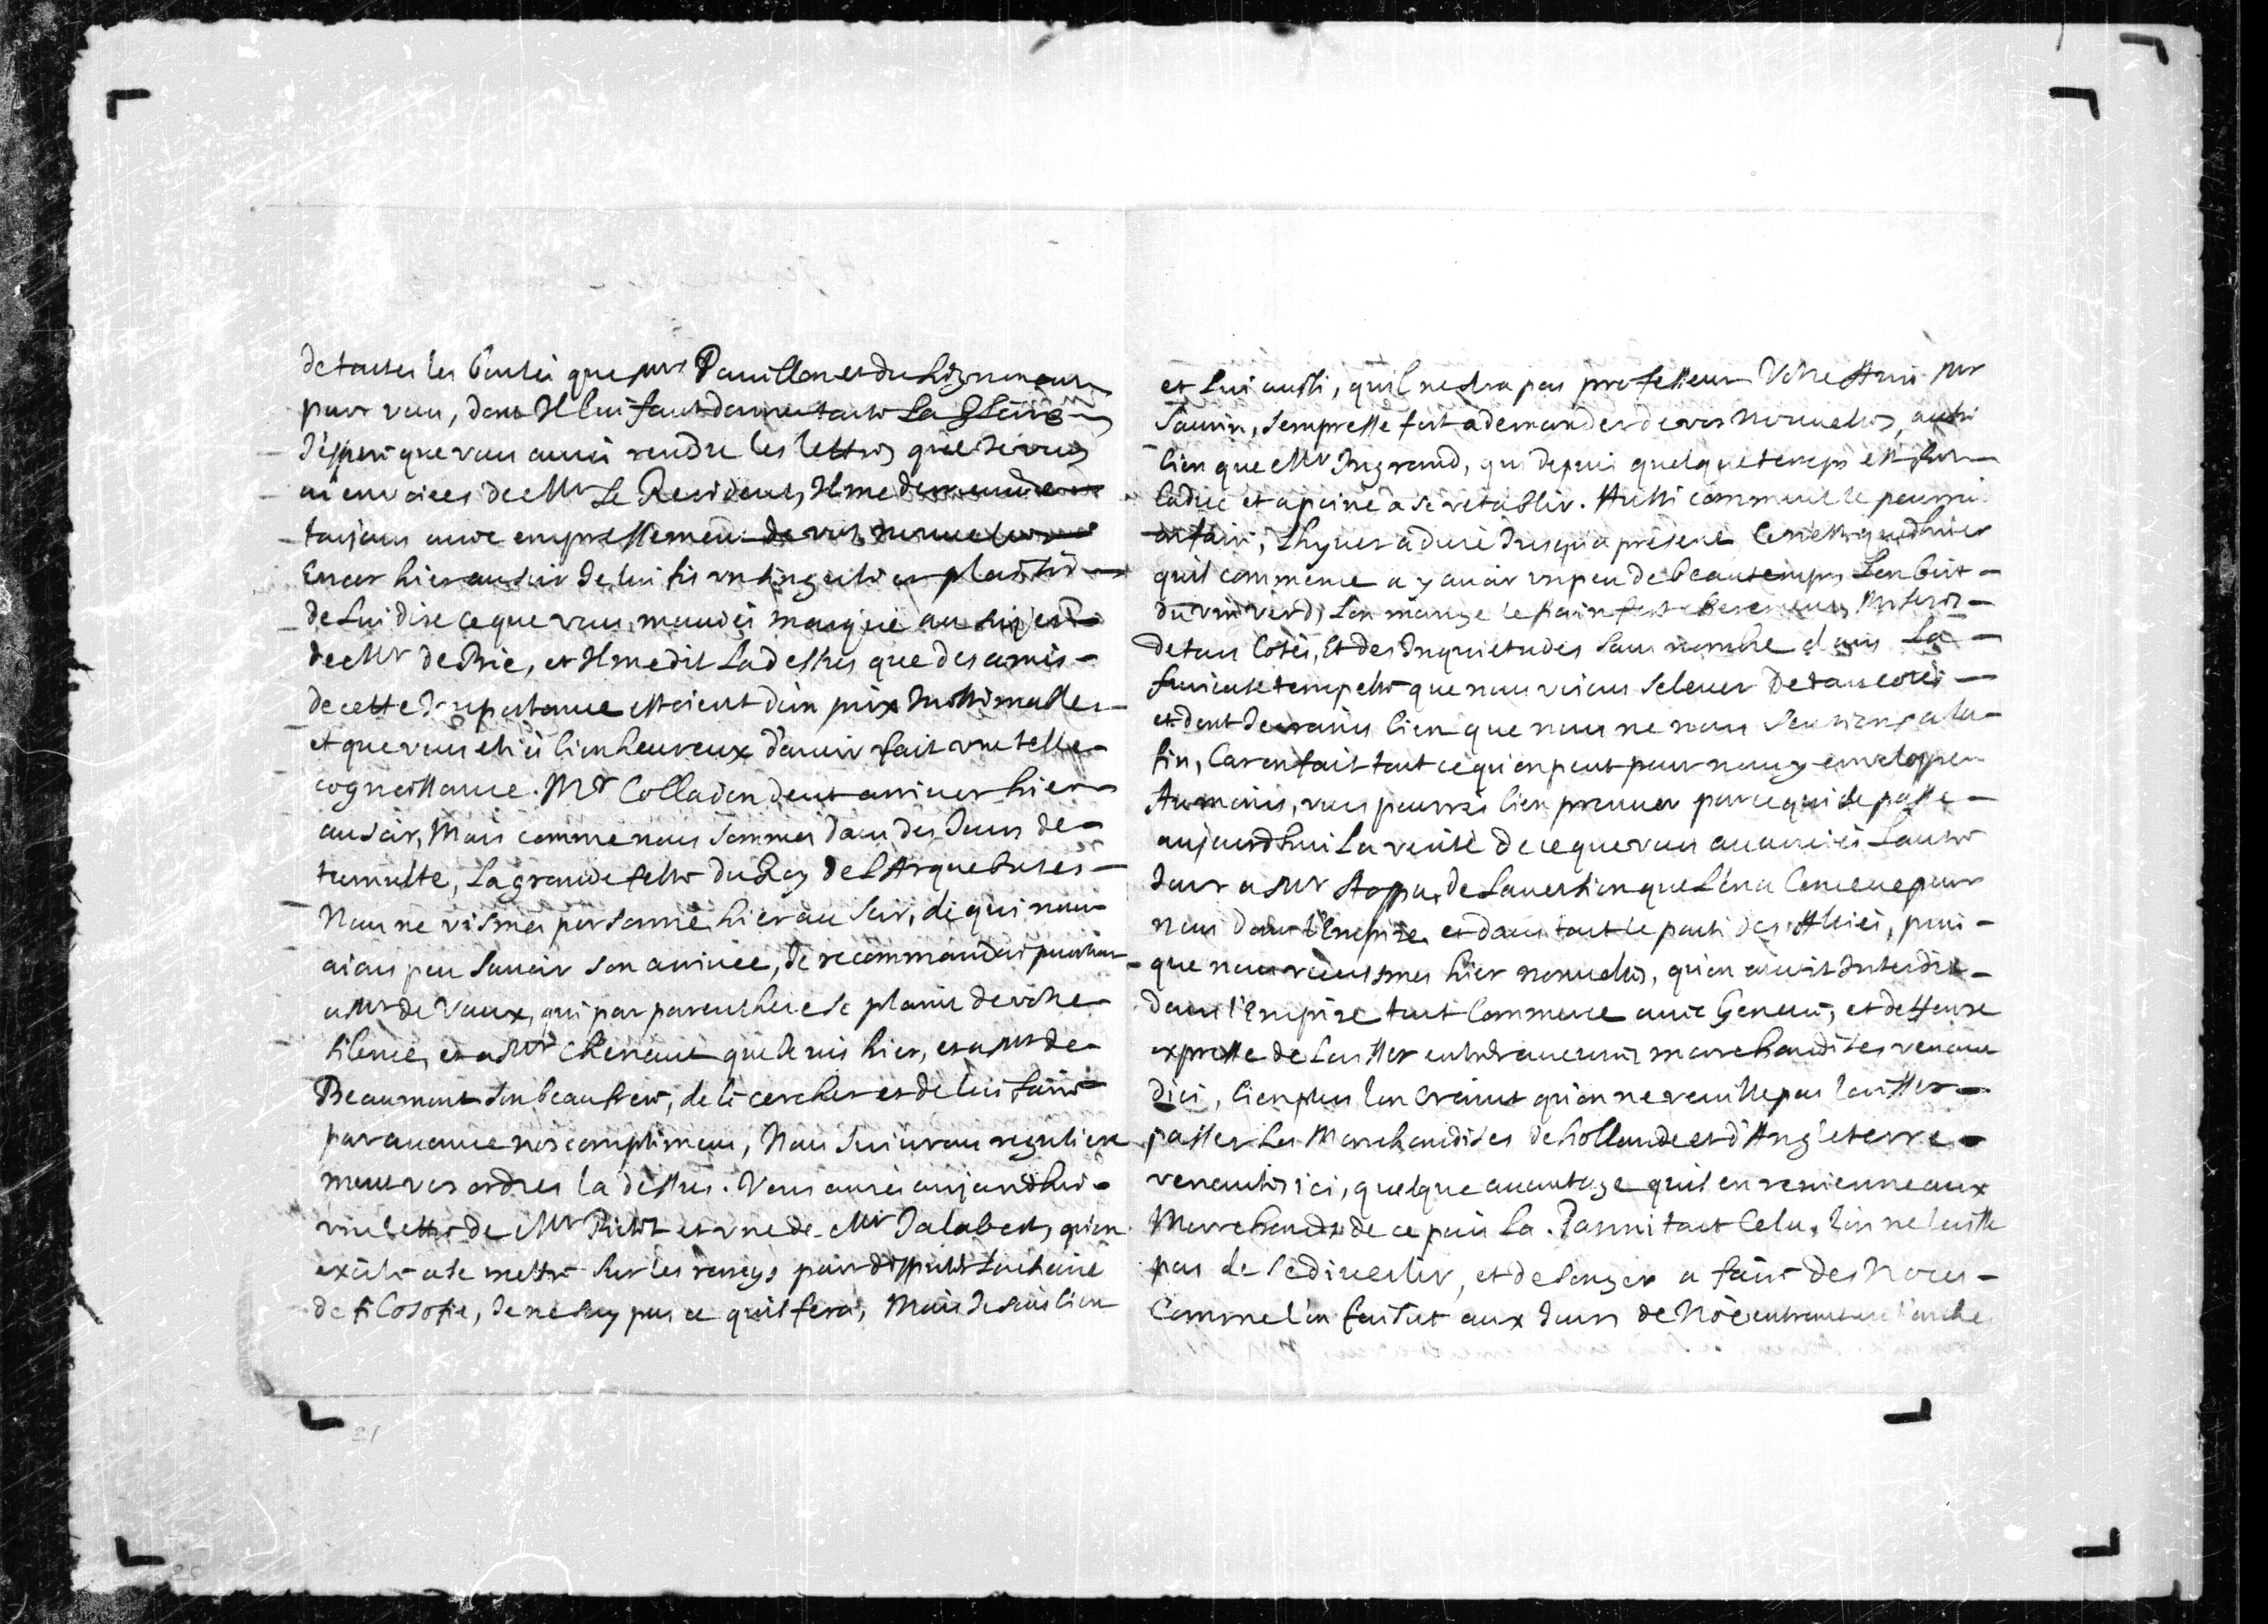 de toutes les bontés que Mrs Pauillon et du Lignon ont
pour vous, dont Il lui faut donner toute La Gloire
J'espere que vous aurés rendu les lettres que Je vous
ai envoiées de Mr Le Resident, Il me demande
toujours avec empressement de vos nouvelles
Encor hier au soir Je lui fis un singulier plaisir
de Lui dire ce que vous m'aviés marqué au sujet
de Mr de Brie, et Il me dit La dessus que des amis
de cette Importance estoient d'un prix Inestimable
et que vous estiés bien heureux d'avoir fait une telle
cognoissance. Mr Colladon deut arriver hier
au soir, Mais comme nous sommes dans des Jours de
tumulte, La grande feste du Roy de L'Arquebuse
Nous ne vismes personne hier au soir, de qui nous
aions peu savoir son arrivée, Je recommandai pourtant
a Mr de Vaux, qui par parenthese se plaint de votre
silence, et a Mr Chenaut que Je vis hier, et a Mr de
Beaumont son beaufrere, de le cercher et de lui faire
par avance nos complimens, Nous suivrons reguliere
ment vos ordres la dessus. Vous aurés aujourdhui
une lettre de Mr Pictet et une de Mr Jalabert, qu'on
exite a se mettre sur les rangs pour disputer La chaire
de filosofie, Je ne say pas ce qu'il fera, Mais Je sais bien
et Lui aussi, qu'il ne sera pas professeur Votre Ami Mr
Saurin, s'empresse fort a demander de vos nouvelles, aussi
bien que Mr Ingrand, qui depuis quelque temps est
et a peine a se retablir. Aussi comment le pourroit
faire, L'hyver a duré Jusqu'a present Ce n'est que d'hier
qu'il commence a y avoir un peu de beau temps, L'on boit
du vin verd, L'on mange le pain fort cherement, Misere
de tous Cotés, Et des Inquietudes sans nombre dans La
furieuse tempeste que nous voions s'elever de tous cotés
et dont Je crains bien que nous ne nous sentions a la
fin, Car on fait tout ce qu'on peut pour nous y envelopper
Au moins, vous pourrés bien prouver par ce qui se passe
aujourdhui La verité de ce que vous avanciés L'autre
Jour a Mr Stoppa, de L'aversion que L'on a Conceue pour
nous dans l'Empire et dans tout le parti des Alliés, puis
que nous receusmes hier nouvelles, qu'on avoit Interdit
dans l'Empire tout Commerce avec Geneve, et deffense
expresse de Laisser entrer aucunes marchandises venant
dici, bien plus l'on Craint qu'on ne veuille pas laisser
passer Les Marchandises de hollande et d'Angleterre
venantes ici, quelque avantage qu'il en revienne aux
Marchands de ce païs La. Parmi tout Cela, l'on ne laisse
pas de se divertir, et de songer a faire des Noces
Comme l'on faisoit aux Jours de Noé entrant en l'arche